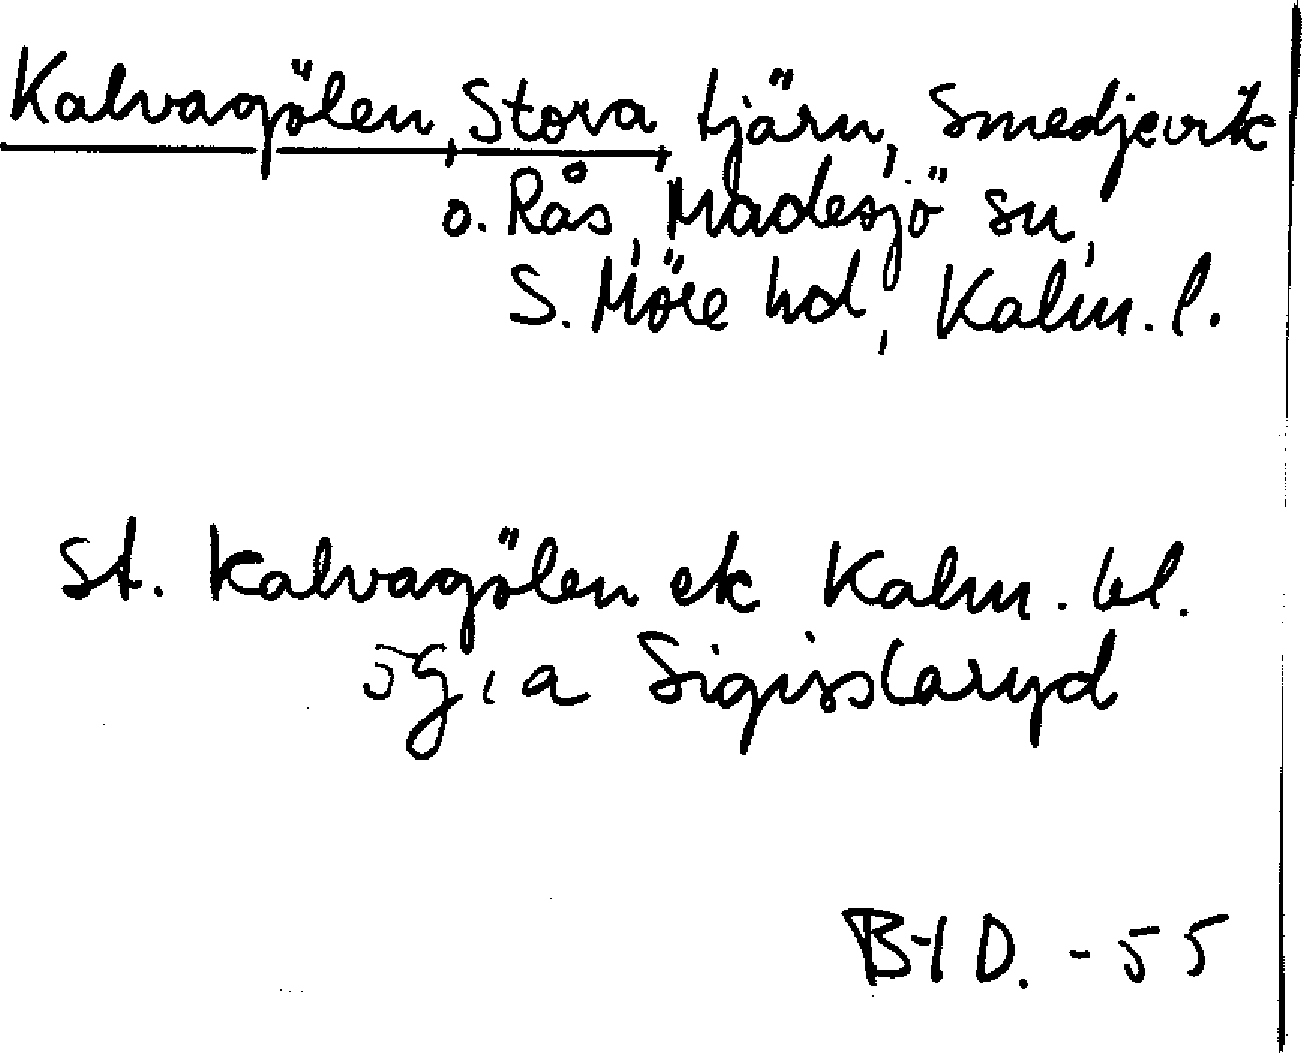 Kalvagölen, Stora, tjärn, Smedjevik
o. Rås, Madesjö sn,
S. Möre hd, Kalm. l.
St. Kalvagölen ek Kalm. bl.
5g, a Sigisslaryd
B-ID. -55